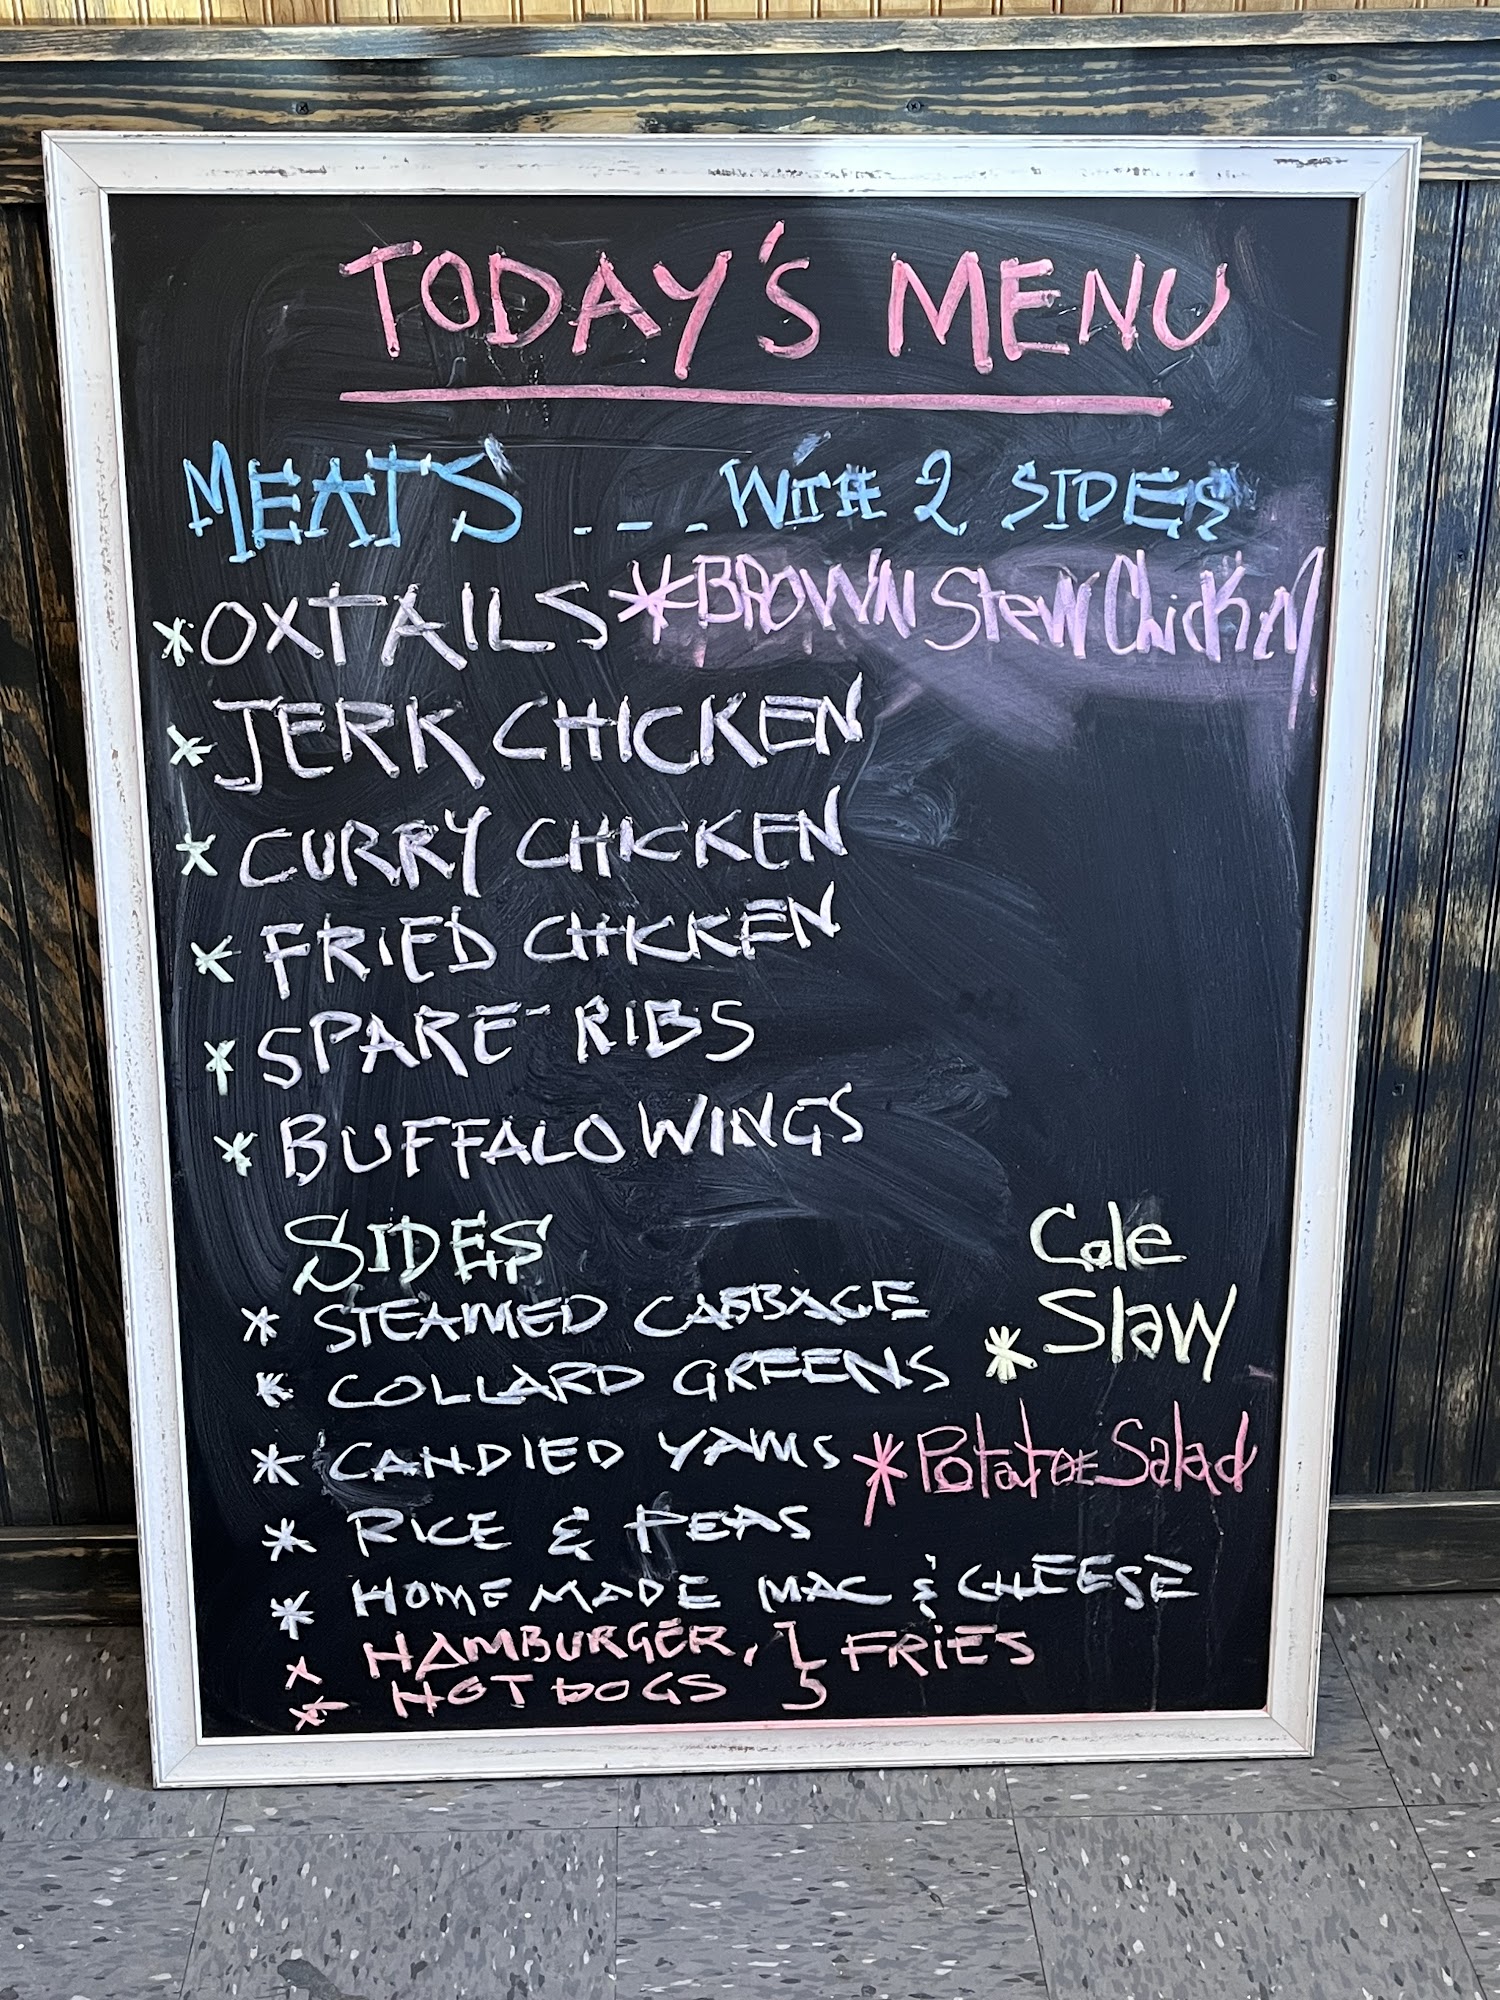 TODAY'S MENU
MEATS . - - - WITH 2 SIDES
* OXTAILS * BROWN Stew Chickn
* JERK CHICKEN
* CURRY CHICKEN
* FRIED CHICKEN
* SPARE-RIBS
* BUFFALO WINGS
SIDES
* STEAMED CABBAGE
* COLLARD GREENS
* Cole Slaw
* CANDIED YAMS * Potatoe Salad
* RICE & PEAS
* HOMEMADE MAC & CHEESE
* HAMBURGER, } FRIES
* HOT DOGS